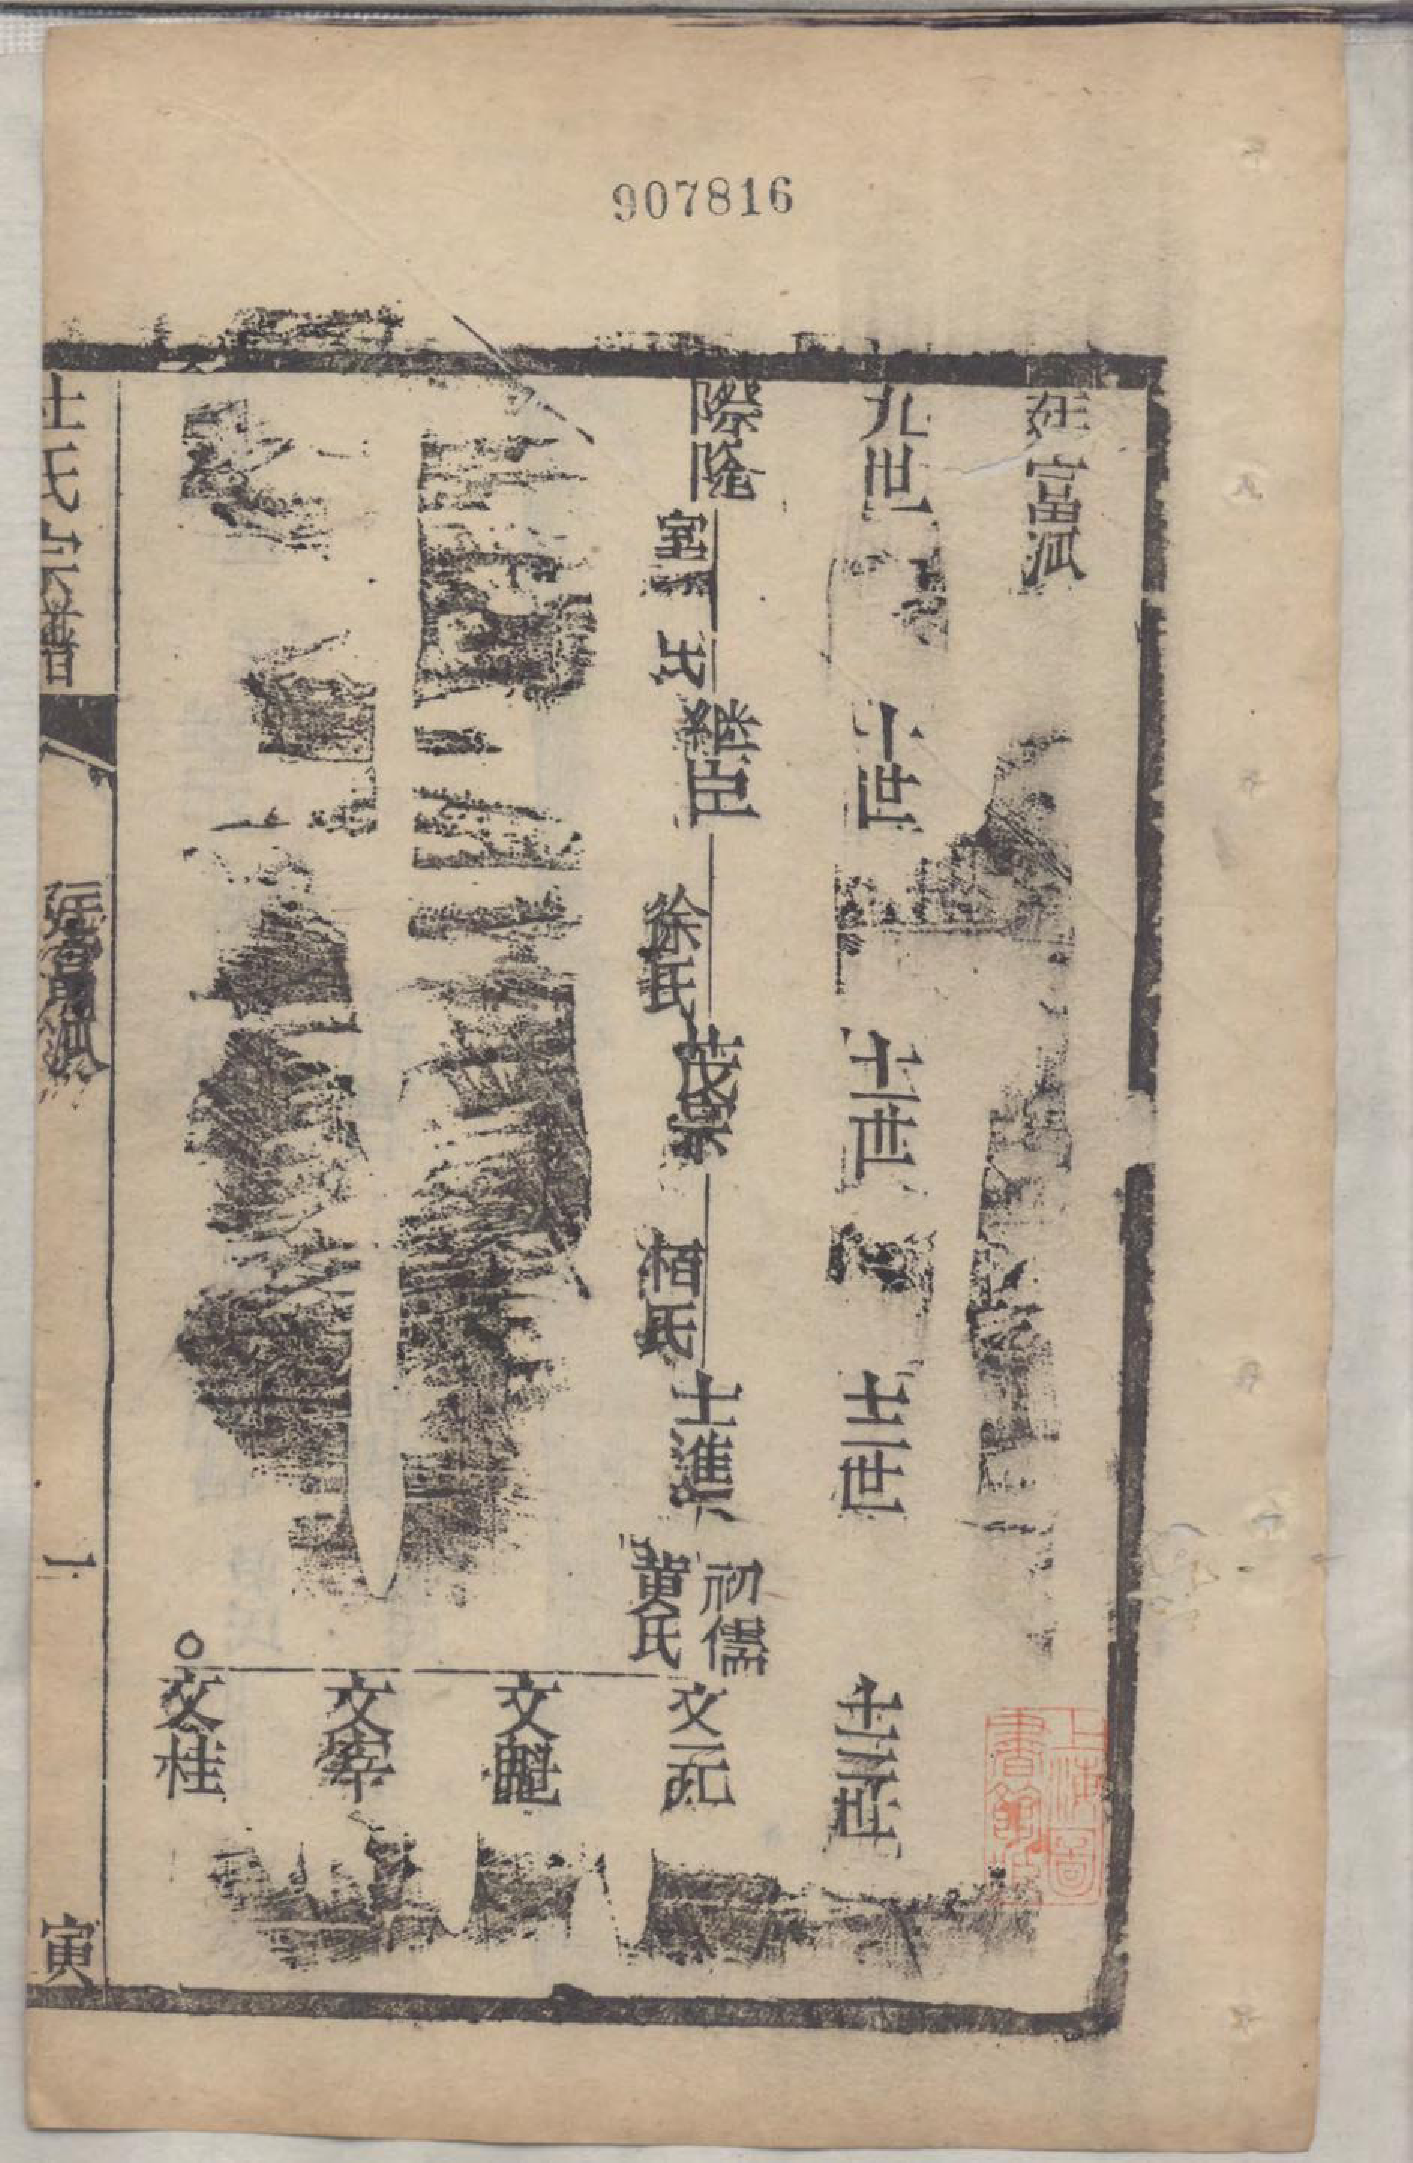 907816
廷富派
九世
十世
十一世
十二世
十三世
際隆
室
氏
継臣
徐氏
茂宗
栢氏
士進
初儒
黄氏
文元
文魁
文宰
○文桂
杜氏宗譜
廷富派
一
寅
上海圖書館